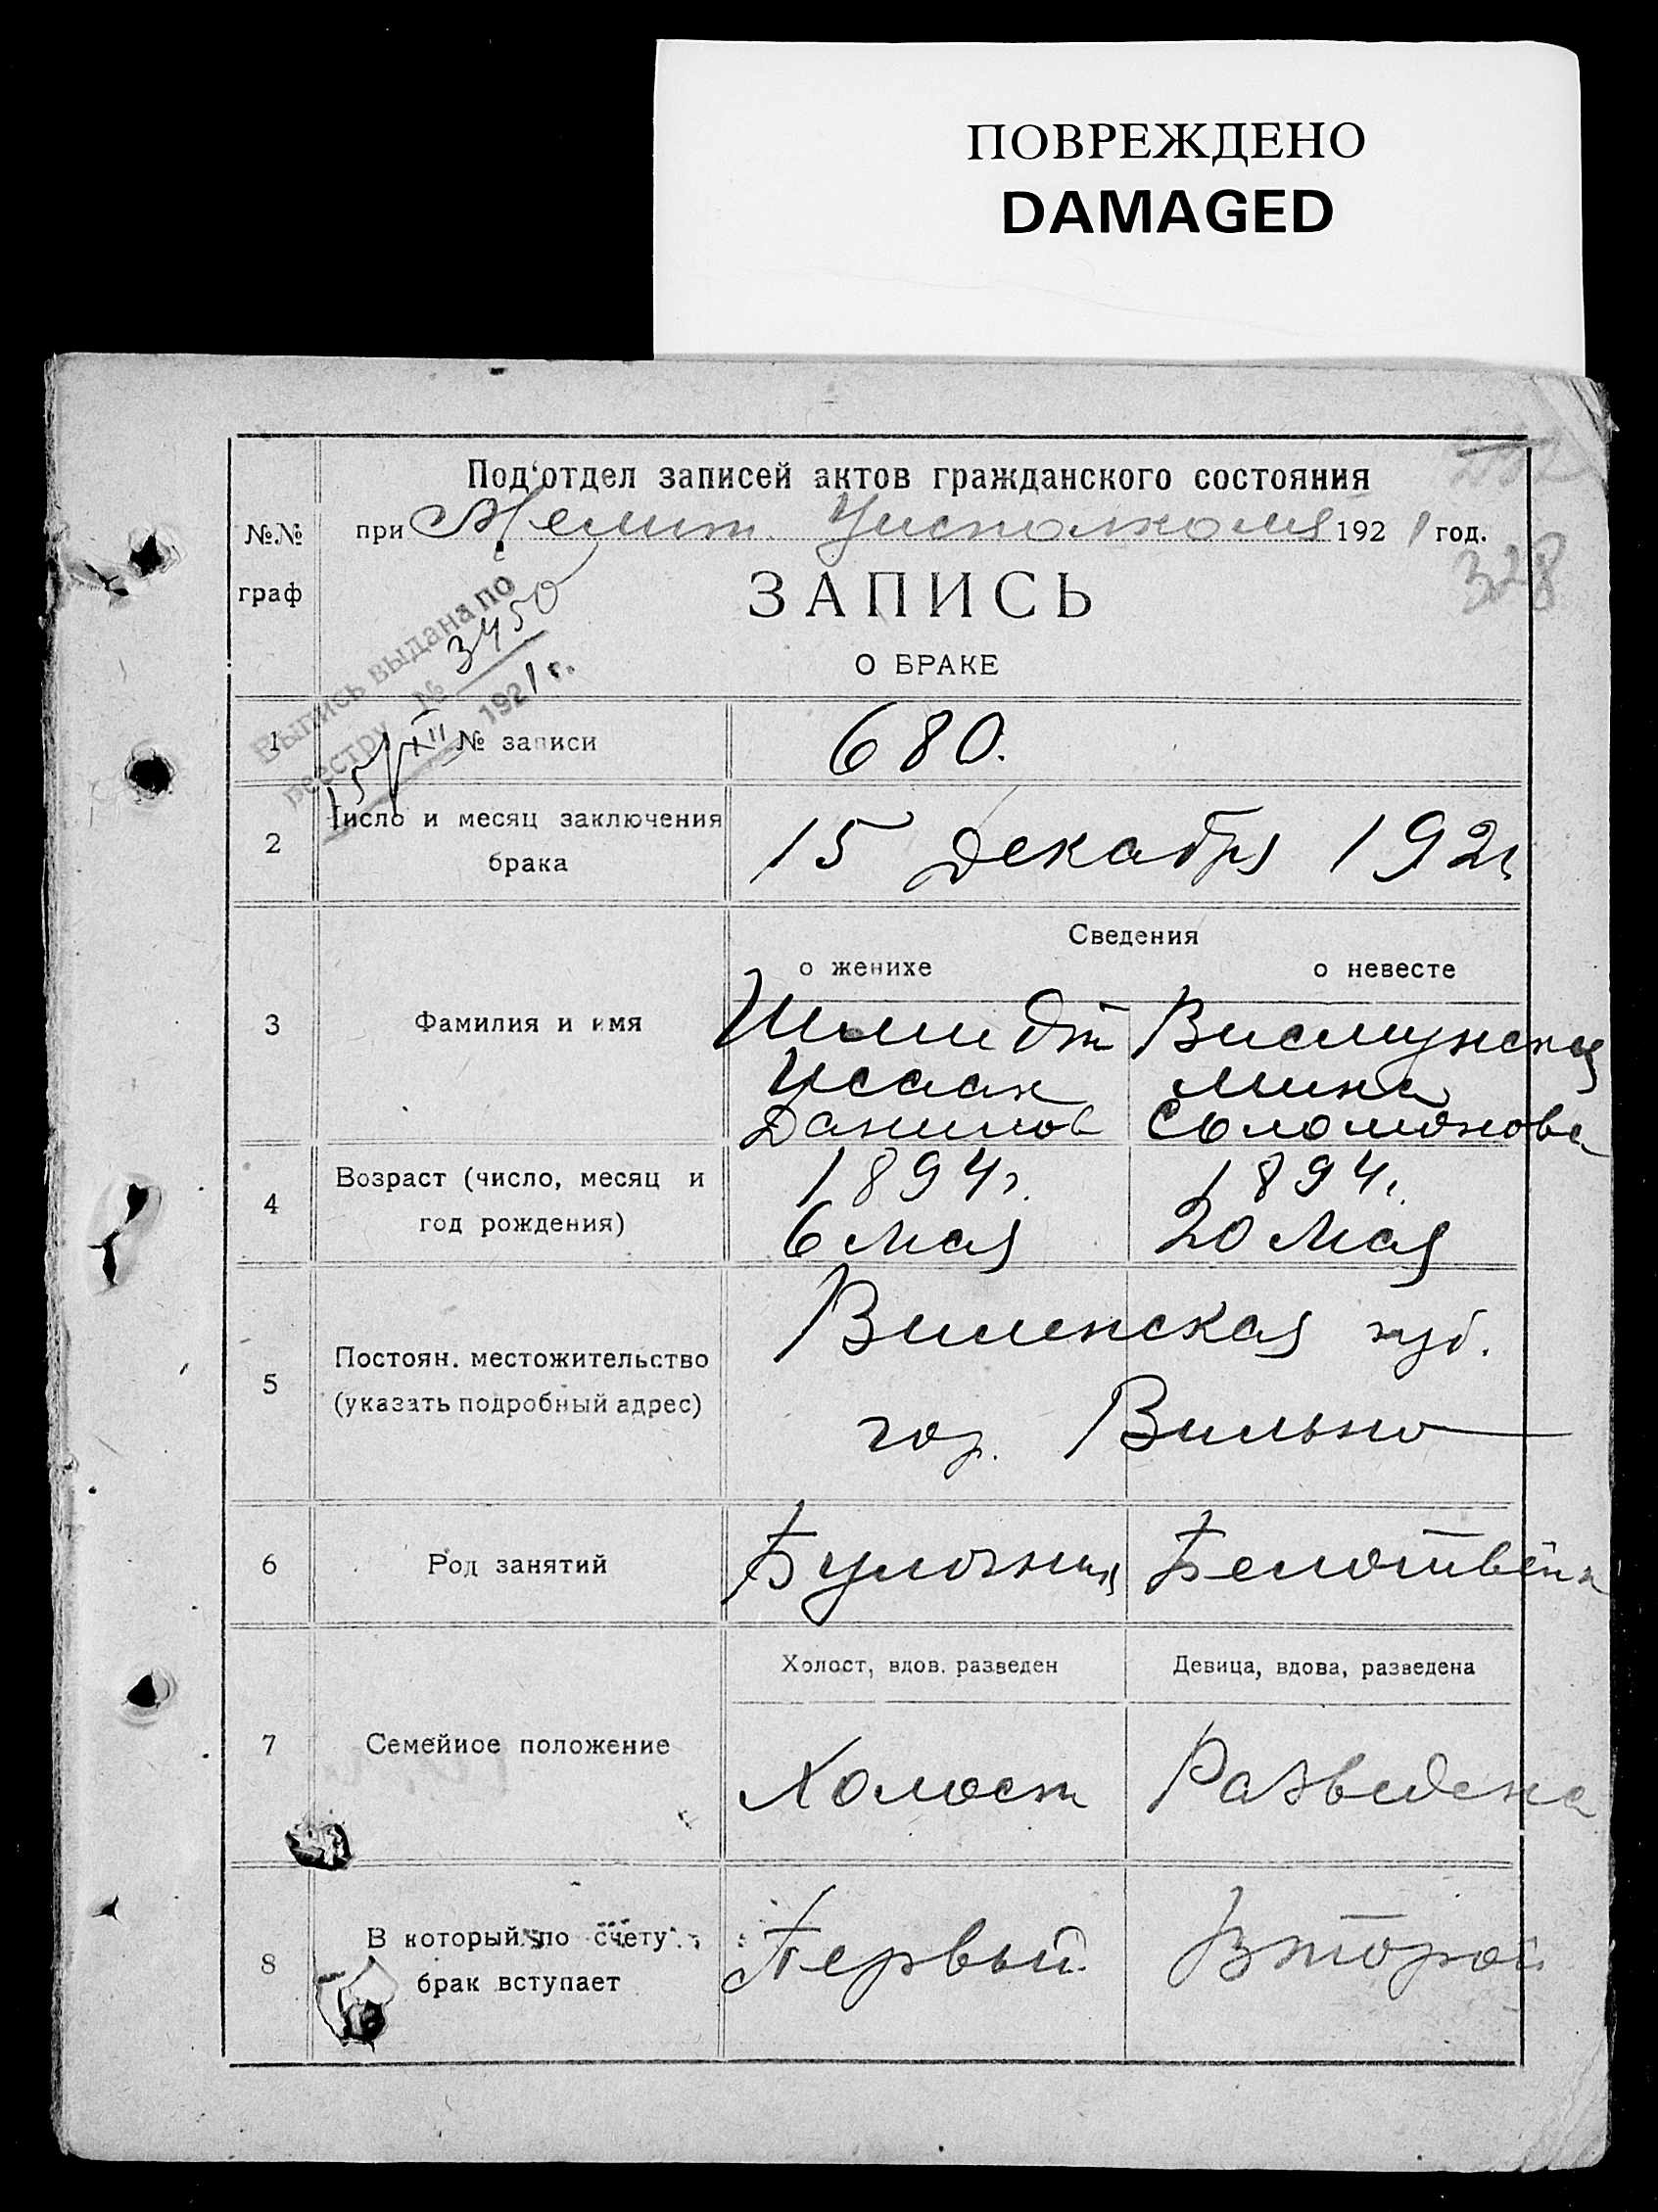 ПОВРЕЖДЕНО
DAMAGED
Под'отдел записей актов гражданского состояния
№№ граф
при Мелит. Уисполкома 1921 год.
328
ЗАПИСЬ
О БРАКЕ
Выпись выдана по
реестру № 3450
15/XII 1921 г.
1 № записи 680.
2 Число и месяц заключения
брака
15 Декабря 1921
Сведения
о женихе о невесте
3 Фамилия и имя
Шмидт
Исаак
Данилов
Мина
Соломонова
4 Возраст (число, месяц и
год рождения)
1894г.
6 Мая
1894г.
20 Мая
5 Постоян. местожительство
(указать подробный адрес)
Виленская губ.
гор. Вильно
6 Род занятий
Булочник
7 Семейное положение
Холост, вдов. разведен
Девица, вдова, разведена
Холост
Разведена
8 В который по счету
брак вступает
Первый
Второй